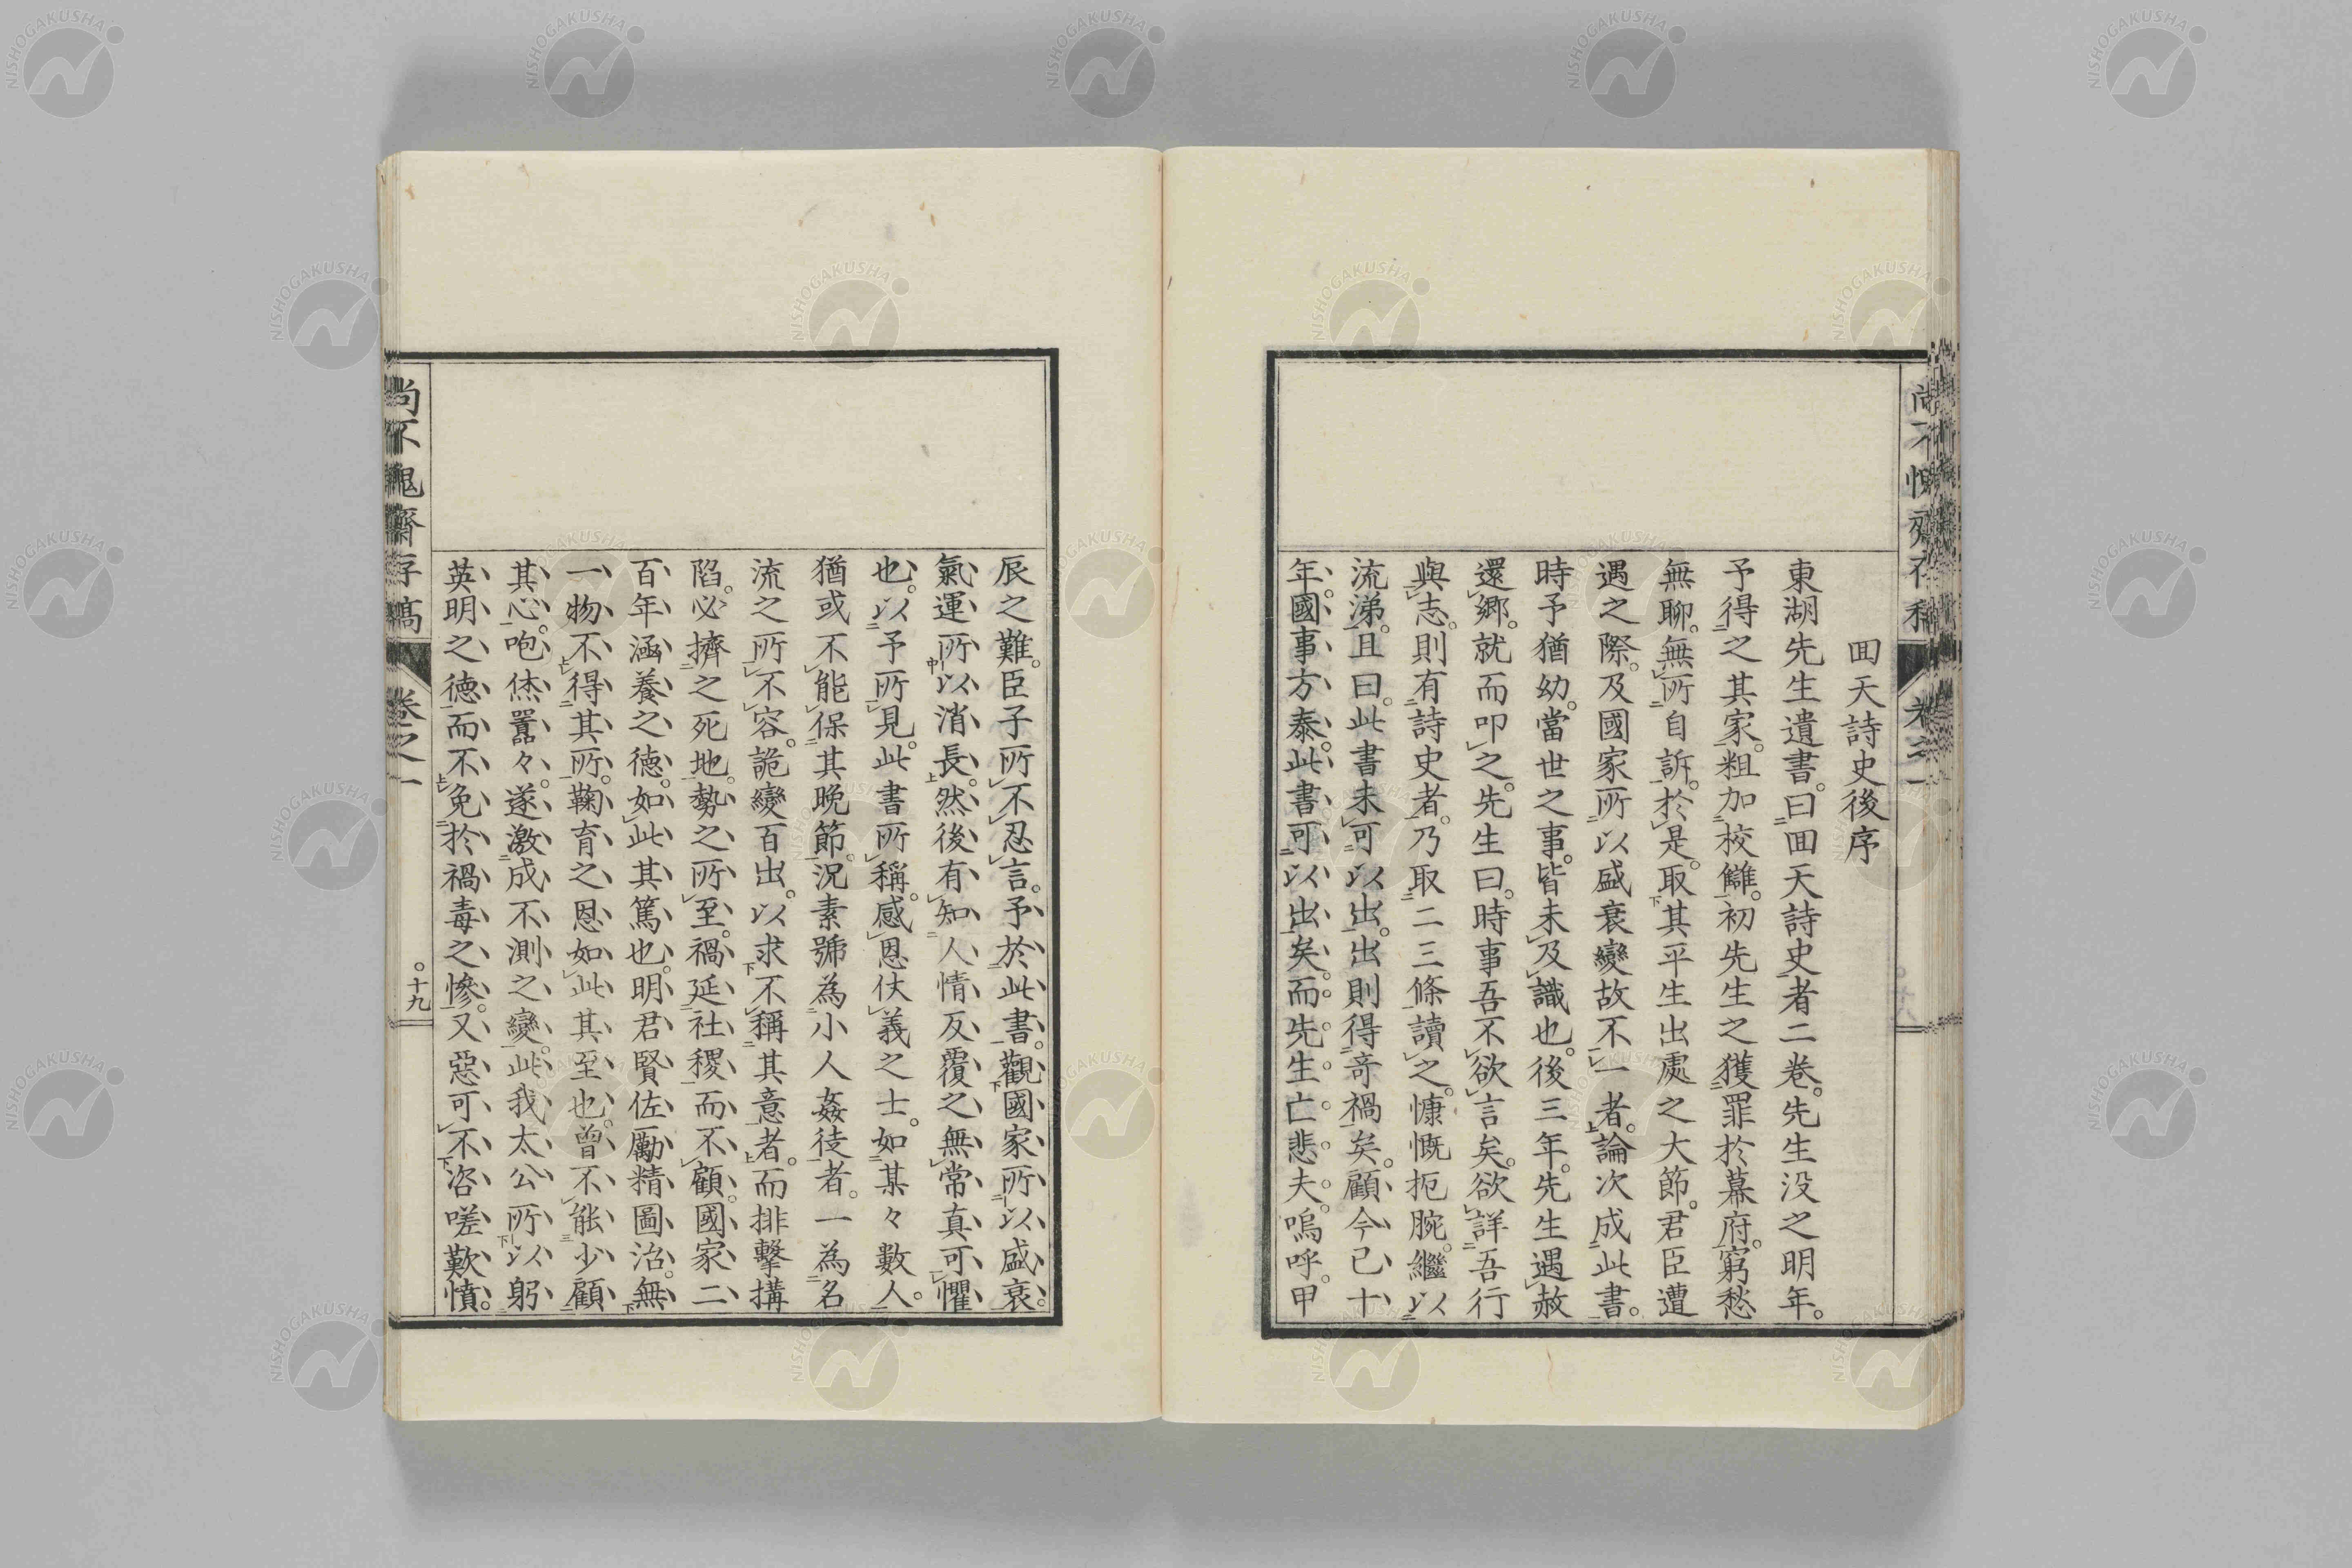 回天詩史後序
東湖先生遺書。曰回天詩史者二巻。先生没之明年。
予得之其家。粗加校讎。初先生之獲罪於幕府。窮愁
無聊。無所自訴。於是取其平生出處之大節。君臣遭
遇之際。及國家所以盛衰變故不一者。論次成此書。
時予猶幼。當世之事。皆未及識也。後三年。先生遇赦
還郷。就而叩之。先生曰。時事吾不欲言矣。欲詳吾行
與志。則有詩史者。乃取二三條讀之。慷慨扼腕。繼以
流涕。且曰。此書未可以出。出則得奇禍矣。顧今已十
年。國事方泰。此書可以出矣。而先生亡。悲夫。嗚呼。甲
辰之難。臣子所不忍言。予於此書。觀國家所以盛衰。
氣運所以消長。然後有知人情反覆之無常真可懼
也。以予所見。此書所稱。感恩仗義之士。如某々數人。
猶或不能保其晩節。況素號為小人姦徒者。一為名
流之所不容。詭變百出。以求不稱其意者。而排擊搆
陷。必擠之死地。勢之所至。禍延社稷。而不顧。國家二
百年涵養之德。如此其篤也。明君賢佐勵精圖治。無
一物不得其所。鞠育之恩如此其至也。曾不能少顧
其心。咆烋囂々。遂激成不測之變。此我太公所以躬
英明之德而不免於禍毒之惨。又惡可不咨嗟歎憤。
尚不愧齋存稿
巻之一
十九
NISHOGAKUSHA